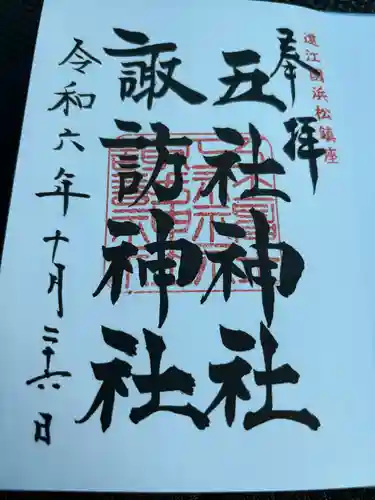 遠江國浜松鎮座
奉拝
五社神社
諏訪神社
令和六年十月二十六日